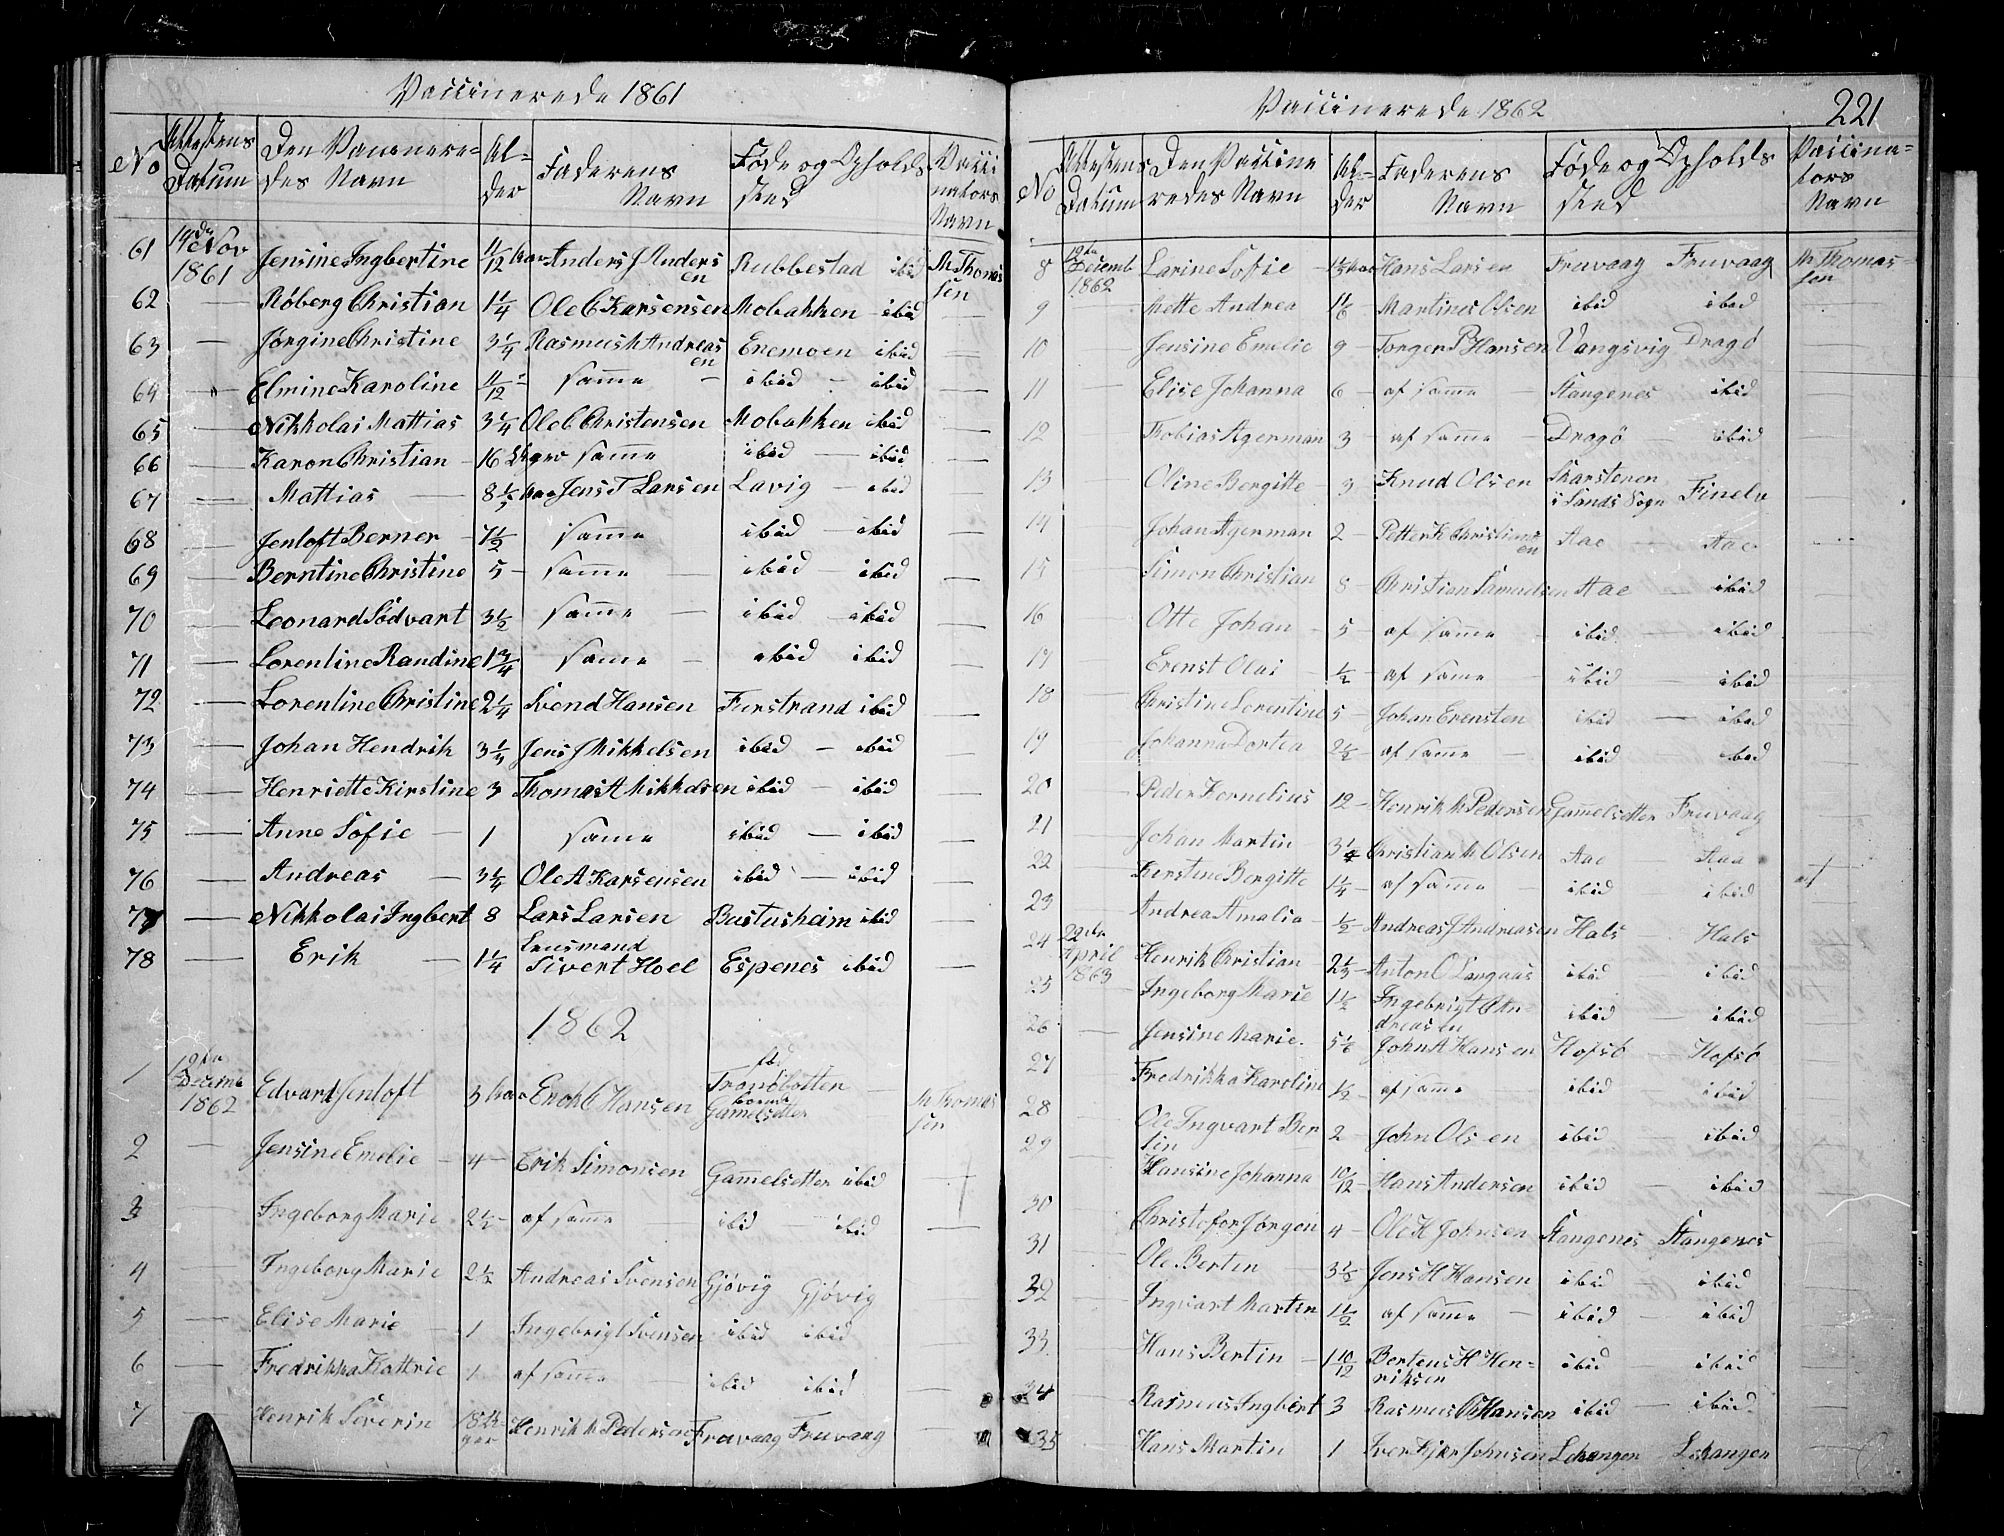 Vaccinerede 1861
No
Attestens Datum
Den Vaccineredes Navn
Alder
Faderens Navn
Føde og Opholdssted
Vaccinators Navn
61 14de Nov 1861 Jensine Ingbertine 11/12 Aar Anders J Andersen Rubbestad ibid M Thomassen
62 — Røberg Christian 1 1/4 Ole C Karsensen Mobakken ibid —
63 — Jørgine Christine 3 1/4 Rasmus M Andreasen Enemoen ibid —
64 — Elmine Karoline 11/12 Samme ibid — ibid —
65 — Nikkolai Mattias 3 1/4 Ole C Christensen Mobakken ibid —
66 — Karon Christian 16 Uger Samme ibid — ibid —
67 — Mattias — Aar Jens T Larsen Lavig — ibid —
68 — Jenloft Berner 7 1/2 Samme ibid — ibid —
69 — Berntine Christine 5 — Samme — ibid ibid —
70 — Leonard Sødvart 3 1/2 Samme — ibid — ibid —
71 — Lorentine Randine 1 3/4 Samme — ibid ibid —
72 — Lorentine Christine 2 1/4 Svend Hansen Furstrand ibid —
73 — Johan Hendrik 3 1/4 Jens J Mikkelsen ibid — ibid —
74 — Henriette Kirstine 3 Thomas A Mikkelsen ibid — ibid —
75 — Anne Sofie — 1 Samme ibid — ibid —
76 — Andreas — 3 1/4 Ole A Karsensen ibid — ibid —
77 — Nikkolai Ingbert 8 Lars Larsen Bustusheim ibid —
78 — Erik — 1 1/4 Lensmand Sivert Hoel Espenes ibid —
1862
1 12te Decemb 1862 Edvard Jenloft 3 Aar Enok C Hansen fød Tranöbotten boende Gamelsetter M Thomassen
2 — Jensine Emelie — 4 — Erik Simonsen Gamelsetter ibid —
3 — Ingeborg Marie 2 1/2 — af Samme — ibid — ibid —
4 — Ingeborg Marie 2 1/2 Andreas Svensen Gjövig Gjövig —
5 — Elise Marie — 1 Ingebrigt Svensen ibid ibid —
6 — Fredrikka Kattrie 1 af Samme — ibid ibid —
7 — Henrik Severin 18 Uger Henrik M Pedersen Fruvaag Fruvaag
Vaccinerede 1862
221
No
Attestens Datum
Den Vaccineredes Navn
Alder
Faderens Navn
Føde og Opholdssted
Vaccinators Navn
8 12te Decemb 1862 Larine Sofie — Aar Hans Larsen Fruvaag Fruvaag M Thomassen
9 — Mette Andrea Martinus Olsen ibid ibid —
10 — Jensine Emelie 9 — Torger P Hansen Vangsvig Dragö —
11 — Elise Johanna 6 — af Samme — Stangenes ibid —
12 — Tobias Agerman 3 — af Samme — Dragö ibid —
13 — Oline Bergitte — 3 Knud Olsen Skarsteren i Sands Sogn —
14 — Johan Agerman 2 — Petter K Christiansen Aae — Aae —
15 — Simon Christian 8 — Christian Samuelsen Aae — ibid —
16 — Otte Johan — 5 — af Samme — ibid — ibid —
17 — Erenst Olai — 1/2 — af Samme — ibid ibid —
18 — Christine Lorentine 5 — Johan Erensten ibid — ibid —
19 — Johanna Dortea 2 1/2 — af Samme — ibid ibid —
20 — Peder Kornelius 12 — Henrik M Pedersen Gamelsetter Fruvaag —
21 — Johan Martin — Christian M Olsen Aae Aaa
22 — Kerstine Bergitte 1 1/4 — af Samme — ibid — ibid —
23 — Andrea Amalia — 1/2 — Andreas J Andreasen Hals — Hals —
24 22de April 1863 Henrik Christian Anton O Langaas ibid — ibid —
25 — Ingeborg Marie 1 1/2 Ingebrigt C Andreasen ibid — ibid —
26 — Jensine Marie John A Hansen Hofsö — Hofsö —
27 — Fredrikka Karoline 1/2 — af Samme — ibid ibid —
28 — Ole Ingvart Bertin 2 — John Olsen ibid — ibid —
29 — Hansine Johanna 10/12 — Hans Andersen ibid — ibid —
30 — Christofor Jørgen 4 — Ole K Johnsen Stangenes Stangenes —
31 — Ole Bertin — 3 1/2 Jens H Hansen ibid — ibid —
32 — Ingvart Martin 1 1/2 af Samme — ibid — ibid —
33 — Hans Bertin — 1 10/12 Bertens H Henriksen ibid — ibid —
34 — Rasmus Ingbert 3 Rasmus Hansen ibid — ibid —
35 — Hans Martin 1 Johnsen Lekangen Lekangen —